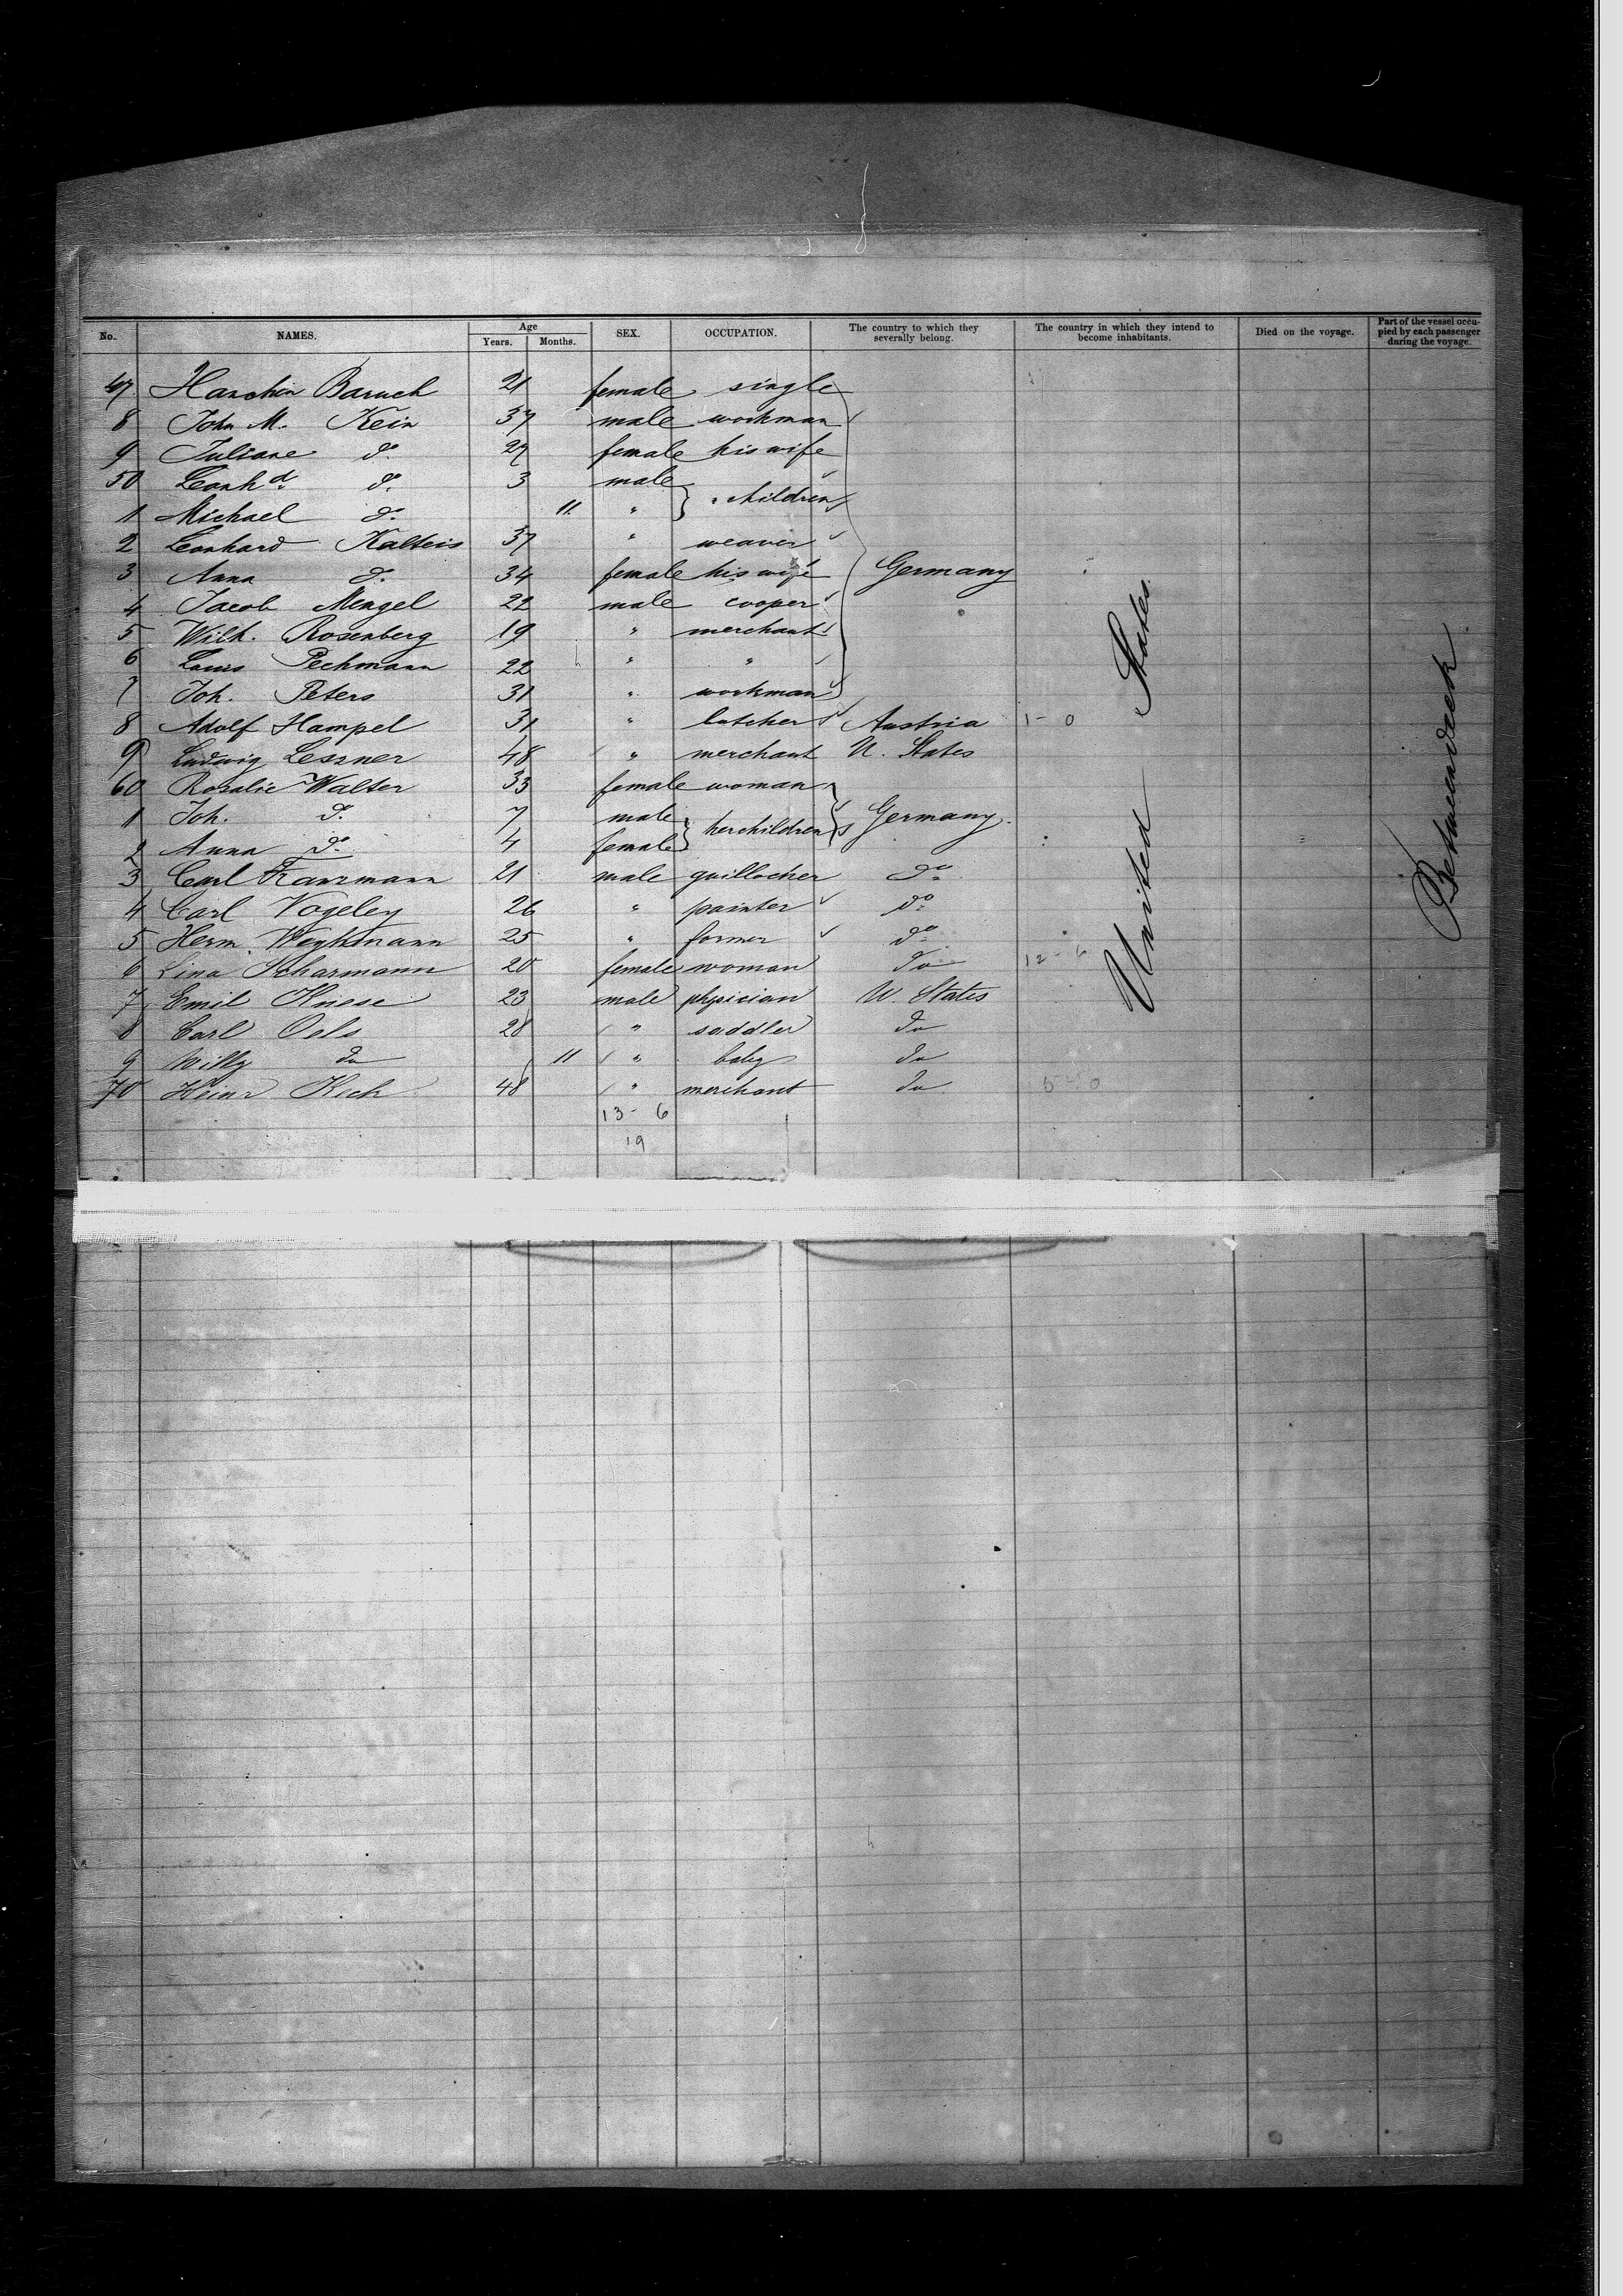 No. NAMES. Age Years. Months. SEX. OCCUPATION. The country to which they severally belong. The country in which they intend to become inhabitants. Died on the voyage. Part of the vessel occupied by each passenger during the voyage.
47 Hanchen Baruch 21 female single
8 John M. Kein 37 male workman
9 Juliane do 27 female his wife
50 Leonhd do 3 male
children
1 Michael do 11 "
2 Leonhard Kalteis 37 " weaver
3 Anna do 34 female his wife Germany
4 Jacob Mengel 22 male cooper
5 Wilh. Rosenberg 19 " merchant
6 Louis Pechmann 22 " "
7 Joh. Peters 31 " workman
8 Adolf Hampel 31 " butcher Austria 1-0
9 Ludwig Lessner 48 " merchant U. States
60 Rosalie Walter 33 female woman
1 Joh. do 7 male her children Germany
2 Anna do 4 female
3 Carl Kanzmann 21 male guillocher do
4 Carl Vogeley 26 " painter do
5 Herm. Weghmann 25 " former do
6 Lina Scharmann 20 female woman do 12-6
7 Emil Knese 23 male physician U States
8 Carl Oels 28 " saddler do
9 Willy do 11 " baby do
70 Heinr Koch 48 " merchant do 5-0
13-6
19
United States
Betweendeck